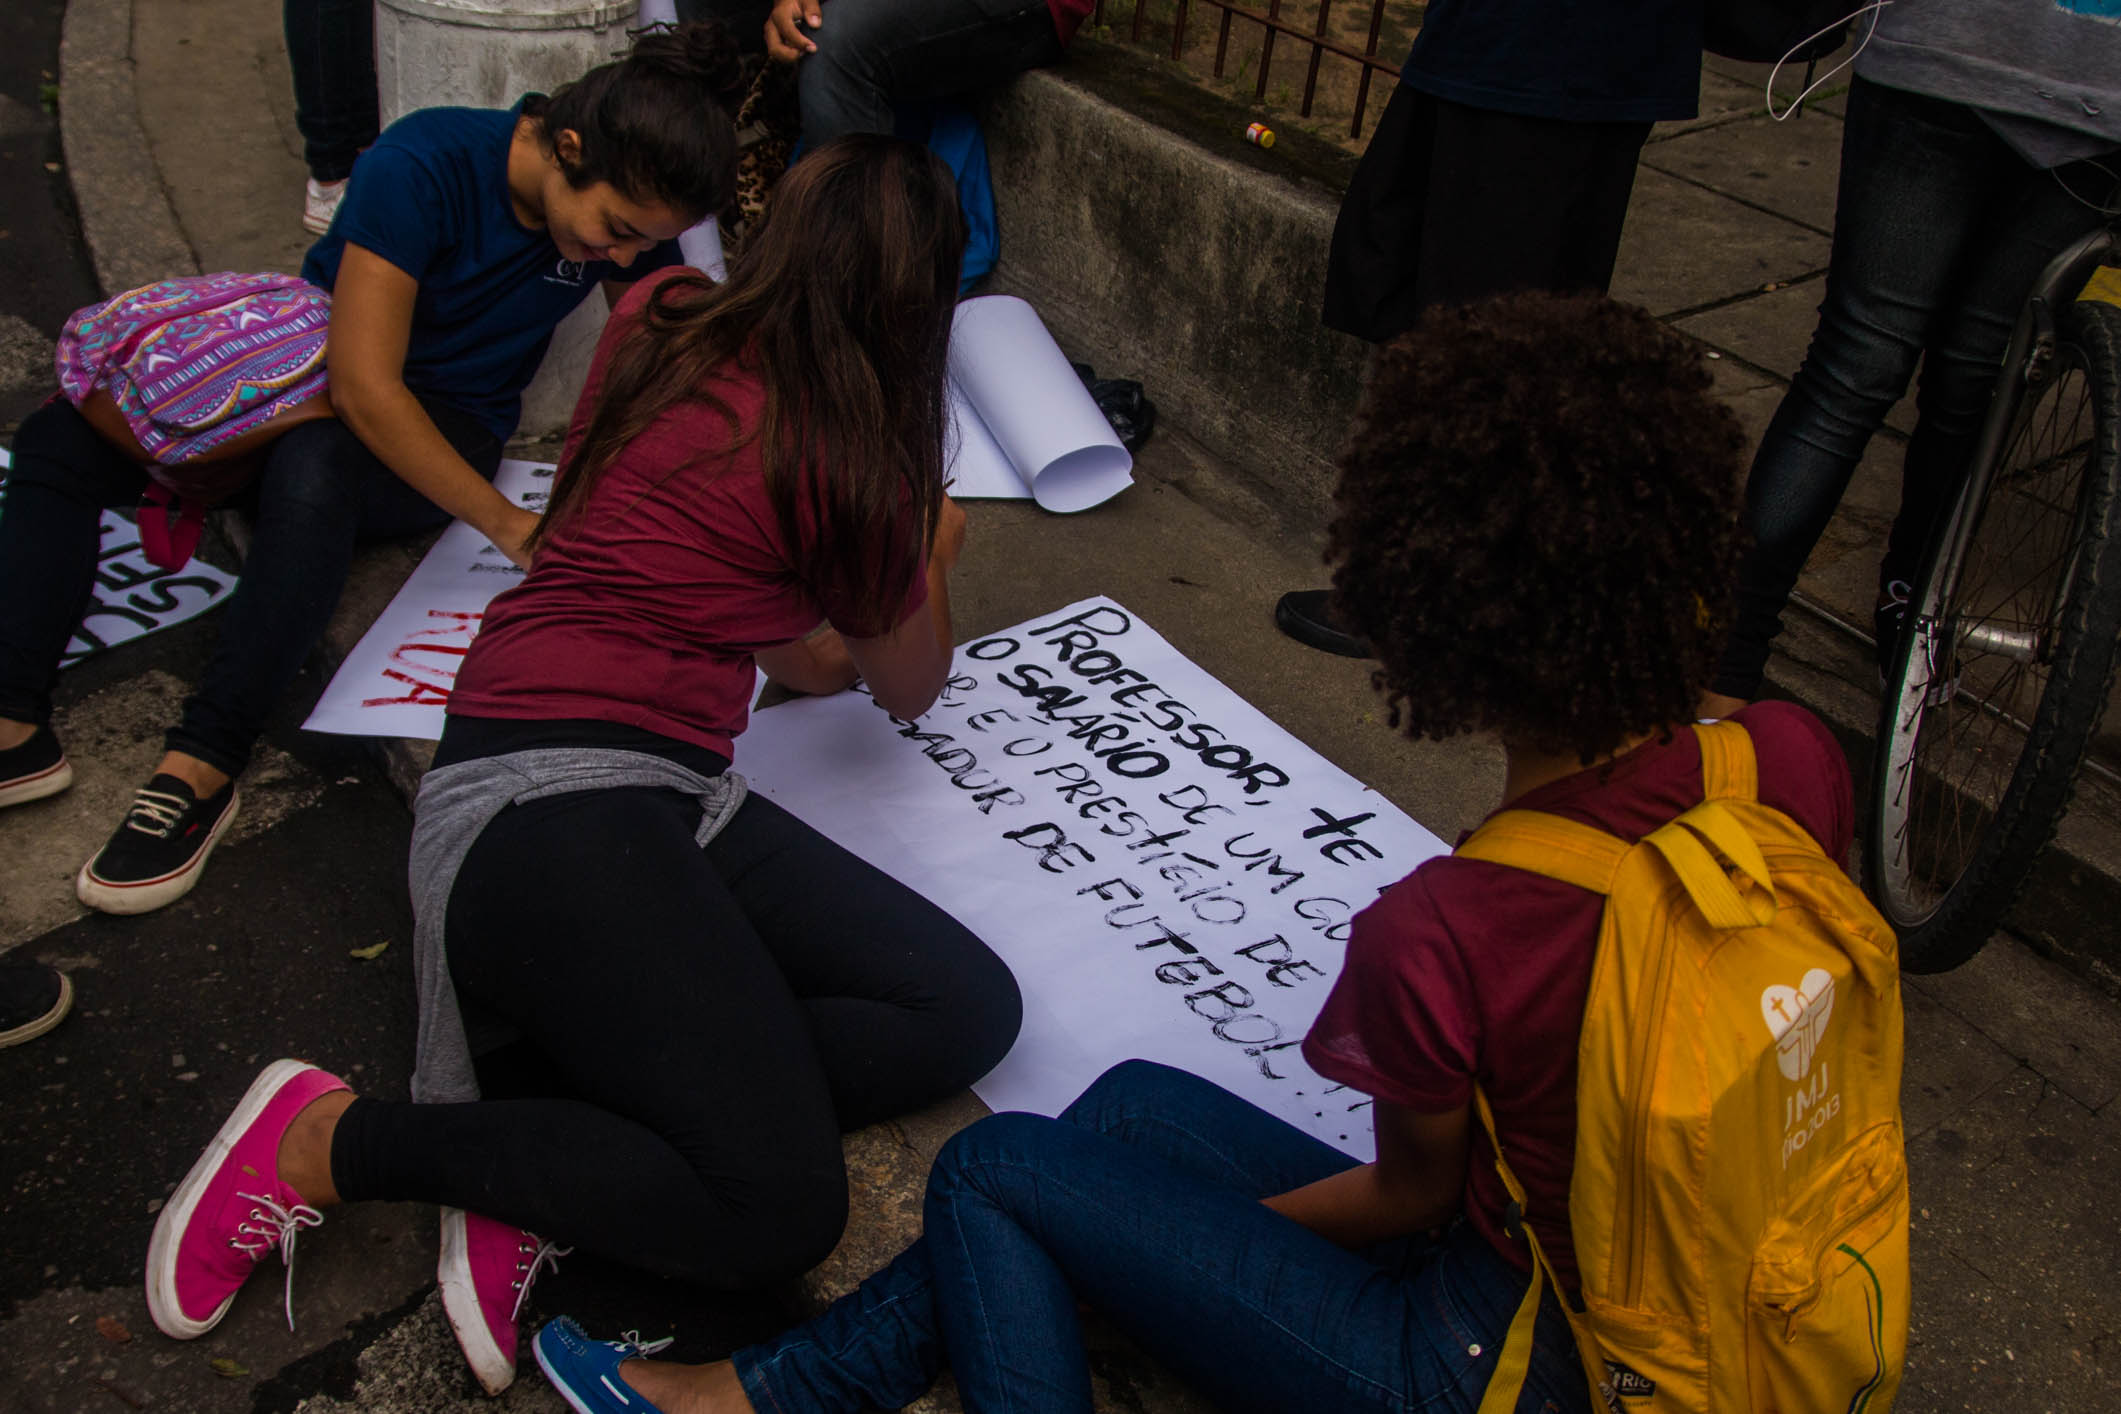 PROFESSOR, te
O SALÁRIO DE UM GO
R, E O PRESTÍGIO DE
JOGADOR DE FUTEBOL..!!
RUA
JMJ
Rio2013
RIO